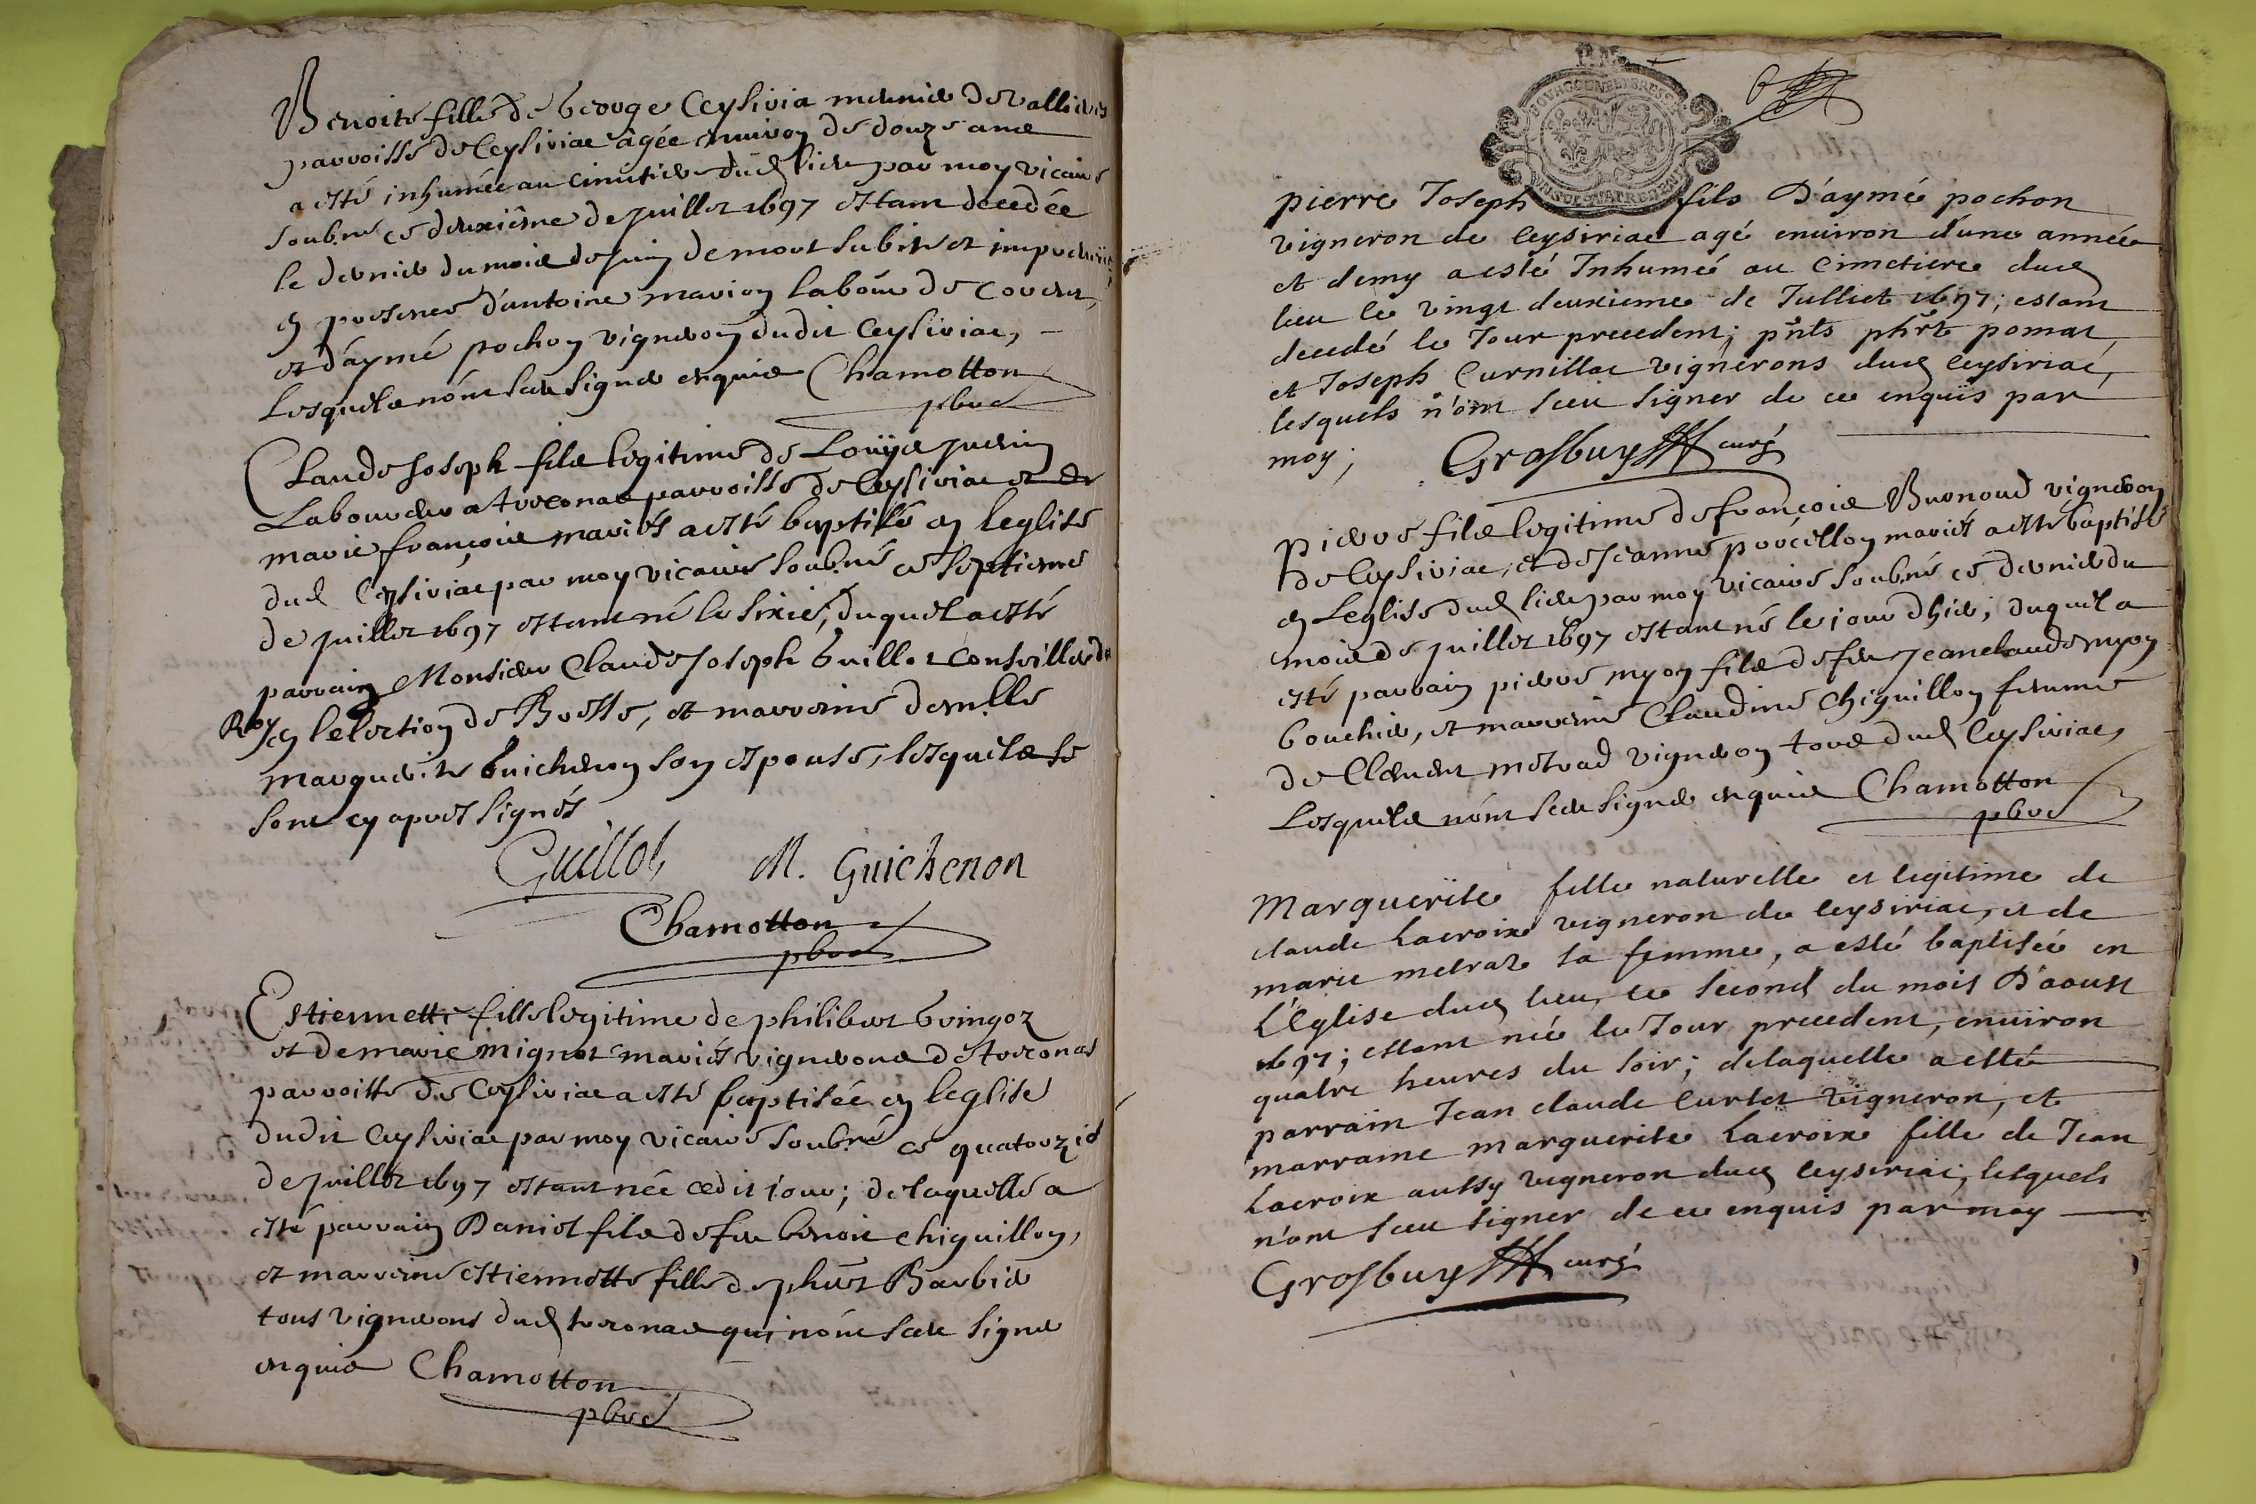 Benoite fille de George Ceysiria meunier de vallieres
parroisse de Ceysiriac âgée environ de douze ans
a esté inhumée au cimitiere dud lieu par moy vicaire
soubné ce deuxiême de juillet 1697 estant decedée
le dernier du mois de juin de mort subite et
en presence d'antoine marion labour de
et d'aymé pochon vigneron dudit Ceysiriac,
lesquels nônt sceu signer enquis Chamotton
pbre
Claude Joseph fils legitime de Louys juenin
Laboureur a treconas parroisse de Ceysiriac et de
marie françoise mariés a esté baptisé en leglise
dud Ceysiriac par moy vicaire soubné ce septieme
de juillet 1697 estant né le sixie, duquel a esté
parrain Monsieur Claude Joseph Guillot Conseiller du
Roy en lelection de Bresse, et marreine demlle
marguerite Guichenon son espouse, lesquels se
sont cy apres signés
Guillot M. Guichenon
Chamotton
pbre
Estiennette fille legitime de philibert Gringoz
et de marie mignot mariés vignerons de treconas
parroisse de Ceysiriac a esté baptisée en leglise
dudit Ceysiriac par moy vicaire soubné ce quatorzie
de juillet 1697 estant née cedit jour; de laquelle a
esté parrain Daniel fils de feu benoit chiquillon,
et marreine estiennette fille de phiert Barbier
tous vignerons dud treconas qui nônt sceu signer
enquis Chamotton
pbre
pierre Joseph fils D'aymé pochon
vigneron de Ceysiriac agé environ d'une année
et demy a esté Inhumé au Cimetiere dud
lieu le vingt deuxieme de Julliet 1697; estant
decedé le Jour precedent; pnts phrt pomat
et Joseph Curnillac vignerons dud Ceysiriac,
lesquels n'ont sceu signer de ce enquis par
moy; Grosbuy curé
pierre fils legitime de françois Buronoud vigneron
de Ceysiriac, et de Jeanne porcellon mariés a esté baptisé
en Leglise dud lieu par moy vicaire soubné ce dernier du
mois de juillet 1697 estant né le jour dhier; duquel a
esté parrain pierre myon fils de feu Jean claude myon
bouchier, et marreine Claudine Chiquillon femme
de Clement metrad vigneron tous dud Ceysiriac,
Lesquels nônt sceu signer enquis Chamotton
pbre
Marguerite fille naturelle et legitime de
claude Lacroix vigneron de Ceysiriac, et de
marie metraz sa femme, a esté baptisée en
L'Eglise dud lieu, le second du mois D'aoust
1697; estant née le Jour precedent, environ
quatre heures du soir; de laquelle a esté
parrain Jean claude Curtet vigneron, et
marraine marguerite Lacroix fille de Jean
Lacroix aussy vigneron dud Ceysiriac, lesquels
n'ont sceu signer de ce enquis par moy
Grosbuy curé